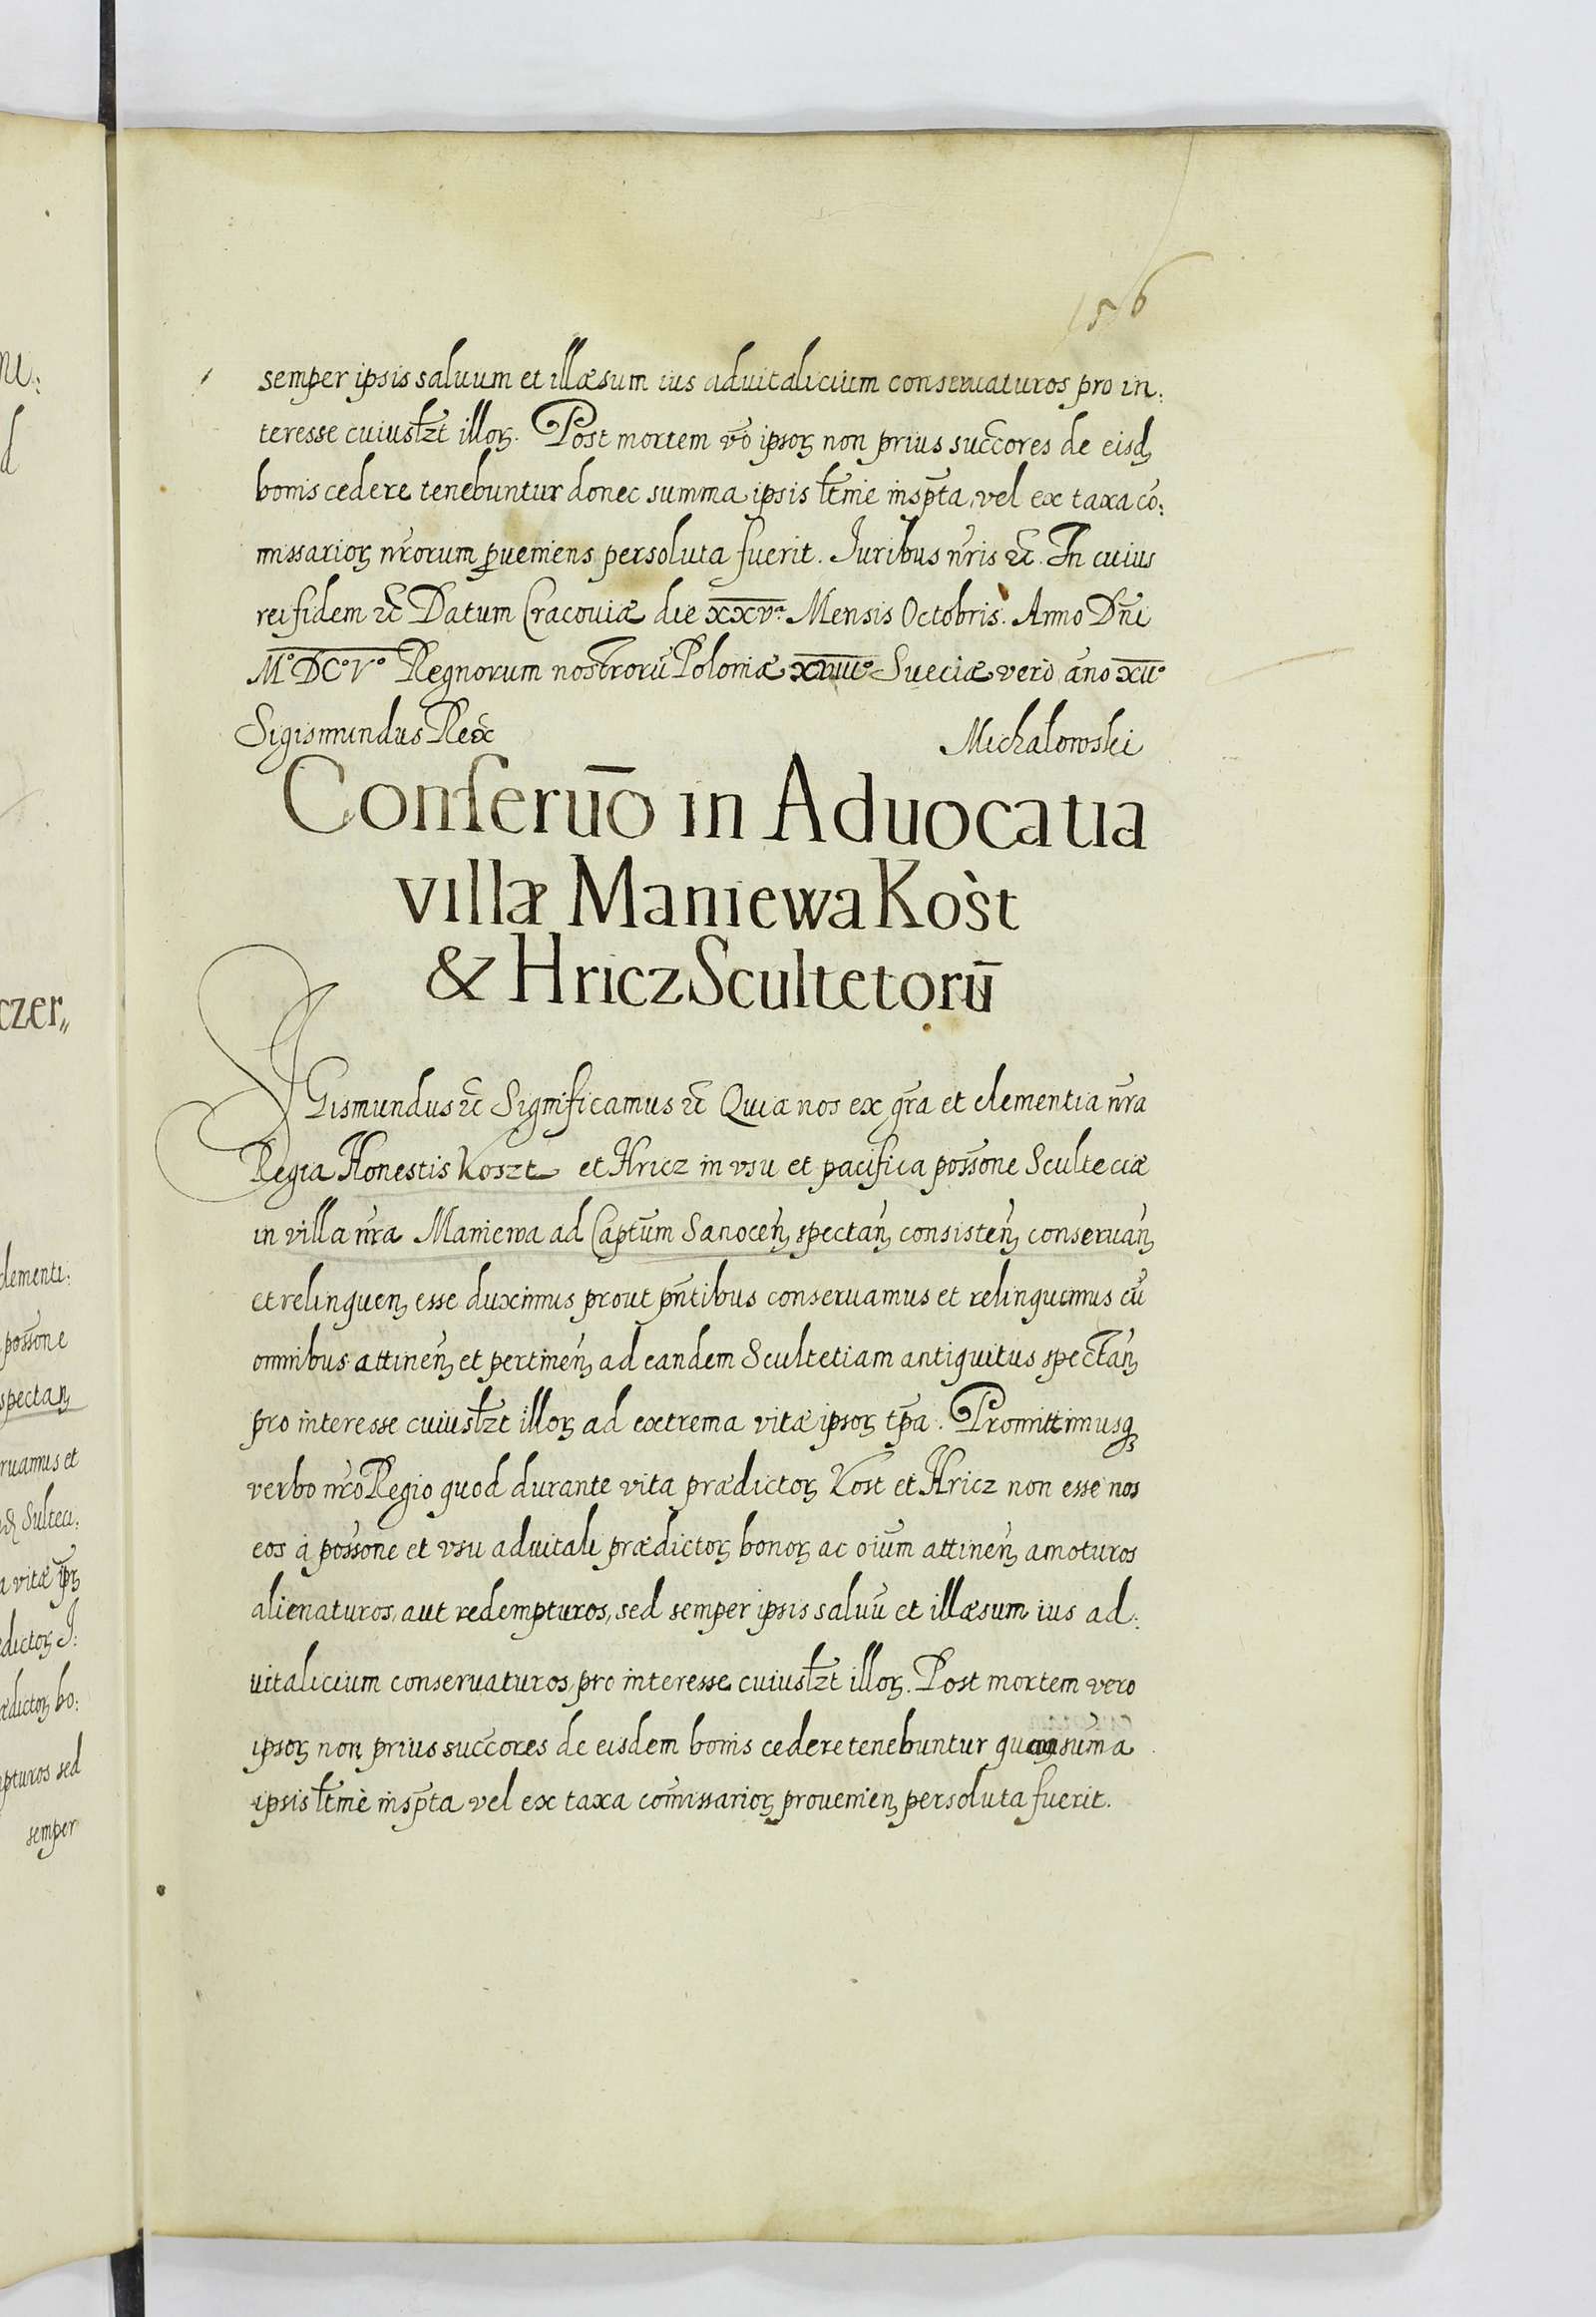 156
semper ipsis saluum et illæsum ius aduitalicium conseruaturos pro in:
teresse cuiuslꝫt illoꝝ. Post mortem vo̅ ipsoꝝ non prius succ̅ores de eisd̅
bonis cedere tenebuntur donec summa ipsis lt̅me insp̅ta, vel ex taxa co̅:
missarioꝝ nr̅orum ꝓueniens persoluta fuerit. Iuribus nr̅is &c̅. In cuius
rei fidem &c̅ Datum Cracouiæ die XXVª Mensis Octobris. Anno Dn̅i
M° DC° V° Regnorum nostroru̅ Poloniæ XVIII° Sueciæ vero an̅o XII°
Sigismundus Rex
Michalowski
Conseruo̅ in Aduocatia
villæ Maniewa Kost
& Hricz Scultetoru̅
SIGismundus &c̅ Significamus &c̅ Quia nos ex gr̅a et clementia nr̅a
Regia Honestis Koszt et Hricz in vsu et pacifica poss̅one Sculteciæ
in villa nr̅a Maniewa ad Capt̅um Sanocen̅ spectan̅ consisten̅ conseruan̅
et relinquen̅ esse duximus prout pn̅tibus conseruamus et relinquimus cu̅
omnibus attinen̅ et pertinen̅ ad eandem Scultetiam antiquitus spectan̅
pro interesse cuiuslꝫt illoꝝ ad extrema vitæ ipsoꝝ tp̅a. Promittimusqꝫ
verbo nr̅o Regio quod durante vita prædictoꝝ Kost et Hricz non esse nos
eos à poss̅one et vsu aduitali prædictoꝝ bonoꝝ ac oiu̅m attinen̅ amoturos
alienaturos, aut redempturos, sed semper ipsis saluu̅ et illæsum ius ad:
uitalicium conseruaturos, pro interesse cuiuslꝫt illoꝝ. Post mortem vero
ipsoꝝ non prius succ̅ores de eisdem bonis cedere tenebuntur quam suma
ipsis lt̅me insp̅ta vel ex taxa com̅issarioꝝ prouenien̅ persoluta fuerit.
czer„
clementi:
poss̅one
spectan̅
ruamus et
Sulteci:
a vitæ ip̅ꝝ
dictoꝝ I:
ædictoꝝ bo:
pturos sed
semper